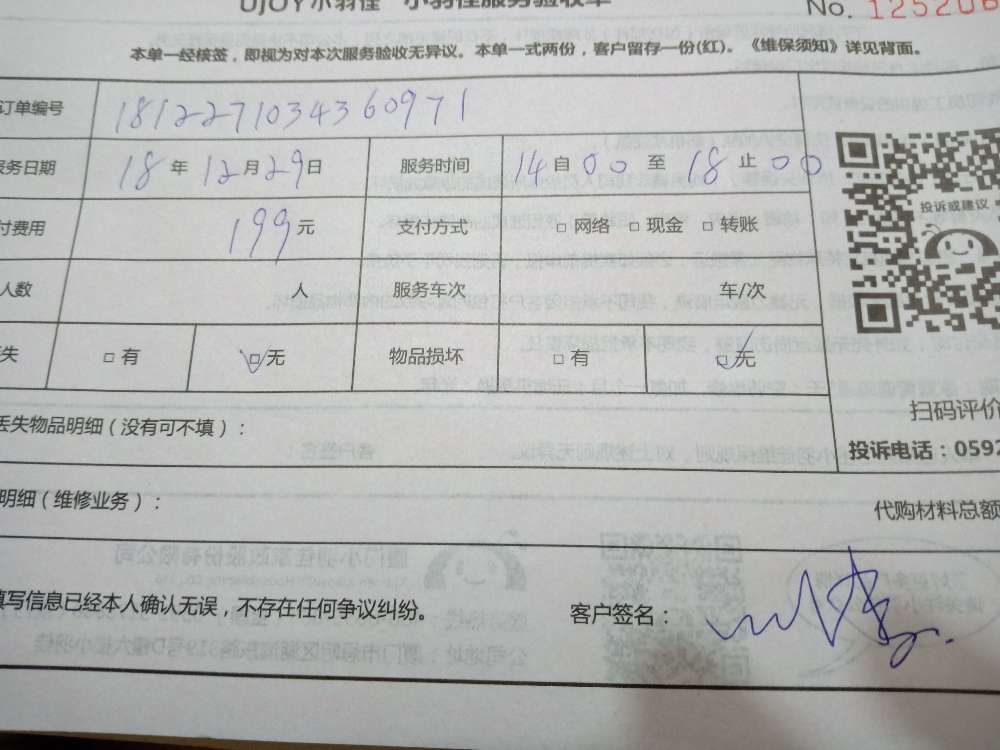 UJOY小羽佳 小羽佳服务验收单
No. 125206
本单一经核签，即视为对本次服务验收无异议。本单一式两份，客户留存一份(红)。《维保须知》详见背面。
订单编号 1812271034360971
服务日期 18年12月29日 服务时间 14自00至18止00
付费用 199元 支付方式 □网络 □现金 □转账
人数 人 服务车次 车/次
失 □有 □无 物品损坏 □有 □无
投诉或建议
扫码评价
丢失物品明细（没有可不填）：
投诉电话：0592
明细（维修业务）：
代购材料总额
填写信息已经本人确认无误，不存在任何争议纠纷。
客户签名：